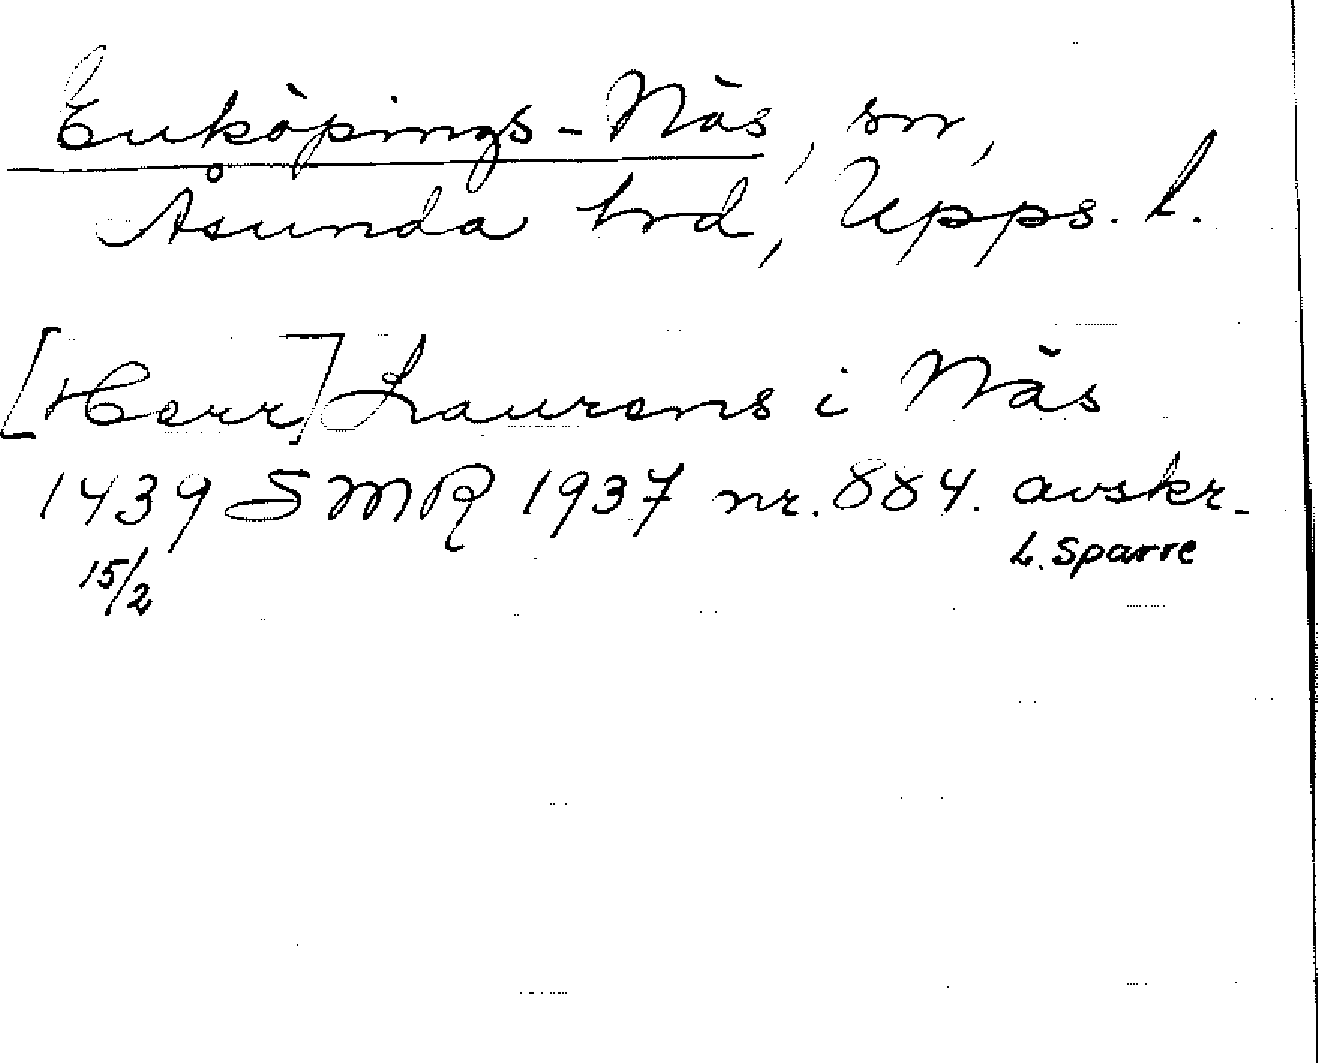 Enköpings-Näs, sn,
Åsunda hrd, Upps. l.
[Herr] Laurens i Näs
1439 SMR 1937 nr. 884. avskr.
15/2 L. Sparre